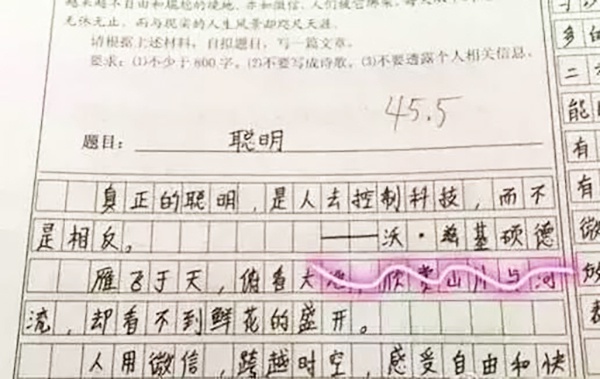 越来越不自由和尴尬的境地。亦如微信，人们被它绑架，每天
无休无止，而与现实的人生风景却咫尺天涯。
请根据上述材料，自拟题目，写一篇文章。
要求：(1)不少于800字。(2)不要写成诗歌。(3)不要透露个人相关信息。
45.5
题目：聪明
真正的聪明，是人去控制科技，而不
是相反。——沃·兹基硕德
雁飞于天，俯看大地，欣赏山川与河
流，却看不到鲜花的盛开。
人用微信，跨越时空，感受自由和快
多
的
二
能
有
有
微